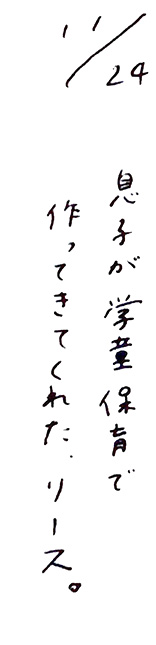 11/24
息子が学童保育で
作ってきてくれた.リース。